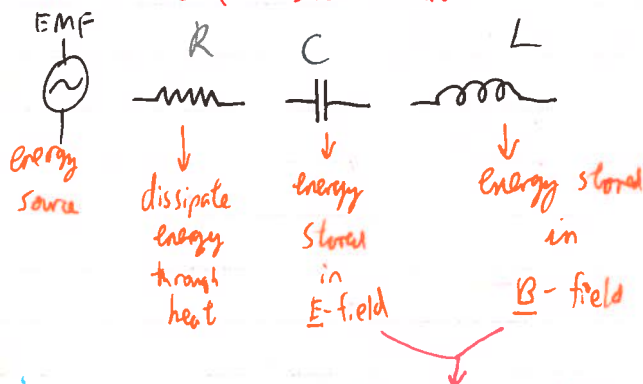 EMF
R
C
L
energy
source
dissipate
energy
through
heat
energy
stored
in
E-field
energy stored
in
B - field